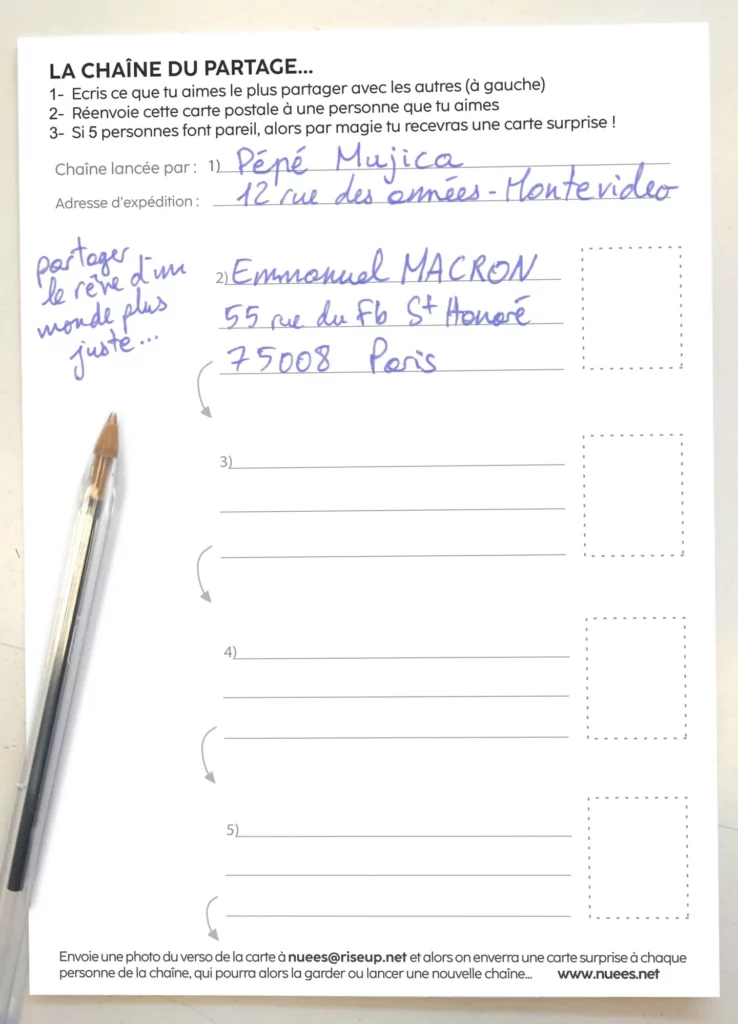 LA CHAÎNE DU PARTAGE...
1- Ecris ce que tu aimes le plus partager avec les autres (à gauche)
2- Réenvoie cette carte postale à une personne que tu aimes
3- Si 5 personnes font pareil, alors par magie tu recevras une carte surprise !
Chaîne lancée par : 1) Pépé Mujica
Adresse d'expédition : 12 rue des années - Montevideo
partager
le rêve d'un
monde plus
juste...
2) Emmanuel MACRON
55 rue du Fb St Honoré
75008 Paris
3)
4)
5)
Envoie une photo du verso de la carte à nuees@riseup.net et alors on enverra une carte surprise à chaque
personne de la chaîne, qui pourra alors la garder ou lancer une nouvelle chaîne... www.nuees.net